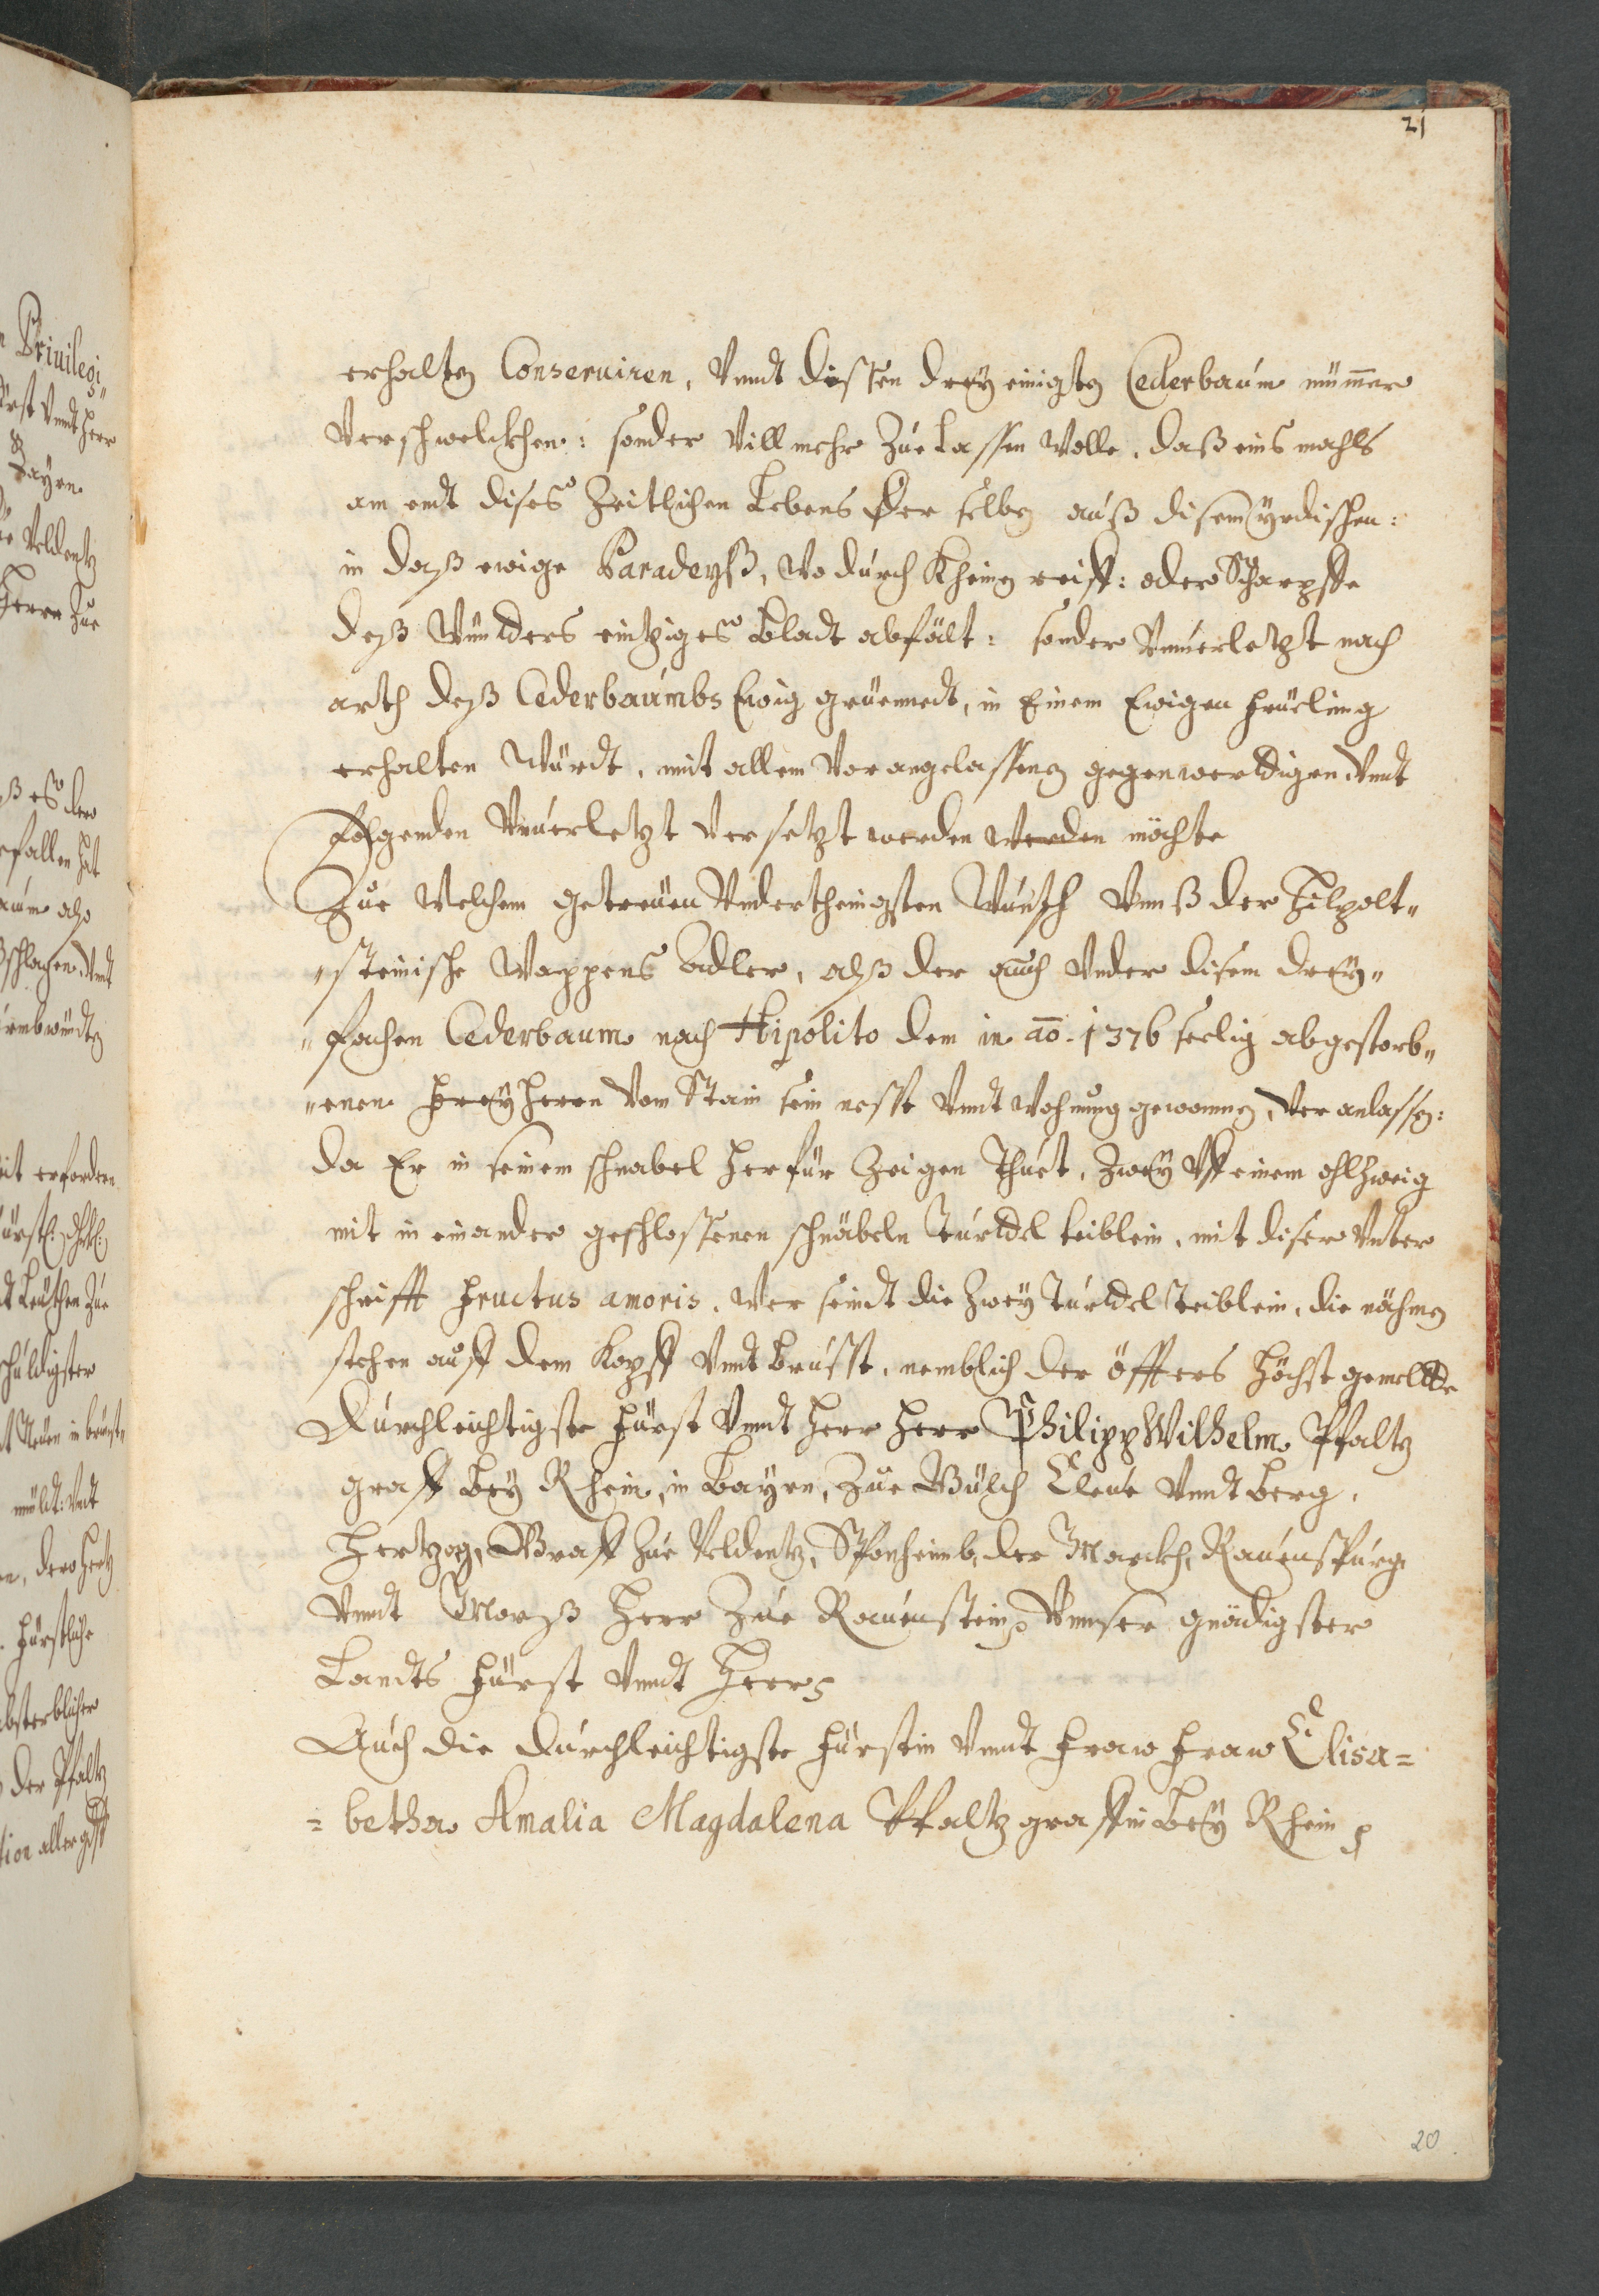 21
erhalten Conseruiren, Vnndt dissen drey einigsten Cederbaúm nim̄er
Verschwelckhen: sonder Vill mehr Zúe Lassen Wolle, daß eins mahls
am endt dises Zeitlichen Lebens Der selbe aúß disem yrdischen:
in daß ewige Paradeyß, Wo dúrch Kheinen reiff: oder Schärpffe
deß Wúnders eintziges Bladt abfält: sonder Vnúerletzt nach
arth deß Cederbaúmbs Ewig grüennedt, in Einem Ewigen Früeling
erhalten Würdt, mit allem Vorangelassenen gegenwerdigen Vnndt
Folgenden Vnúerletzt Versetzt werden werden möchte
Zúe Welchem getreúen Vnderthenigsten Wúnsch Vnnß der Hilpolt„
„steinische Wappens Adler, alß der aúch Vnder disem drey„
„fachen Cederbaum nach Hipolito dem in ao. 1376 seelig abgestorb„
„enen Freyherrn Vom Stain sein nesst Vnndt Wohnúng genommen, Veranlassen:
da Er in seinem schnabel herfür Zeigen Thúet, Zwey Vff einem ohlZweig
mit in einander geschlossenen schnäbeln Túrldl teiblein, mit diser Vnter
schrifft Fructus amoris. Wer seindt die Zwey Túrldl teiblein, die nähmen
stehen aúff dem Kopff Vnndt Brússt, nemblich der öffters höchst gemellde
Dúrchleichtigste Fürst Vnndt Herr Herr Philipp Wilhelm Pfaltz
graff Bey Rhein, in Bayrn, Zúe Gülch Cleúe Vnndt Berg,
Hertzog, Graff Zúe Veldentz, Sponheimb, der Marckh, Raúenspúrg
Vnndt Mörß Herr Zúe Raúenstein Vnnser gnädigster
Landts Fürst Vnndt Herr
Aúch die Dúrchleichtigste Fürstin Vnndt Fraw Fraw Elisa=
=betha Amalia Magdalena Pfaltzgraffin Bey Rhein
20